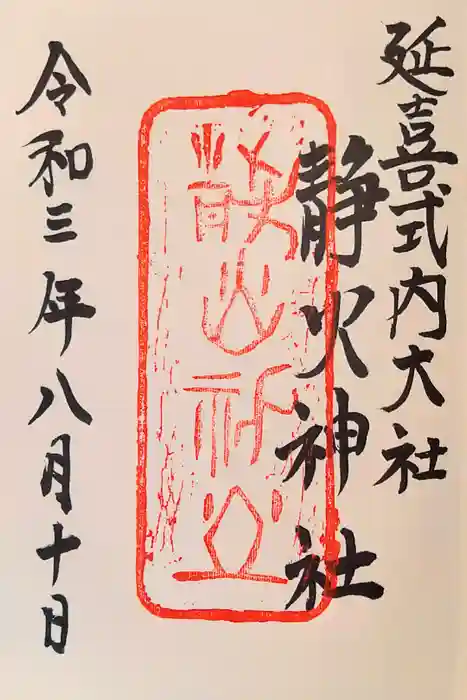 延喜式内大社
静火神社
令和三年八月十日